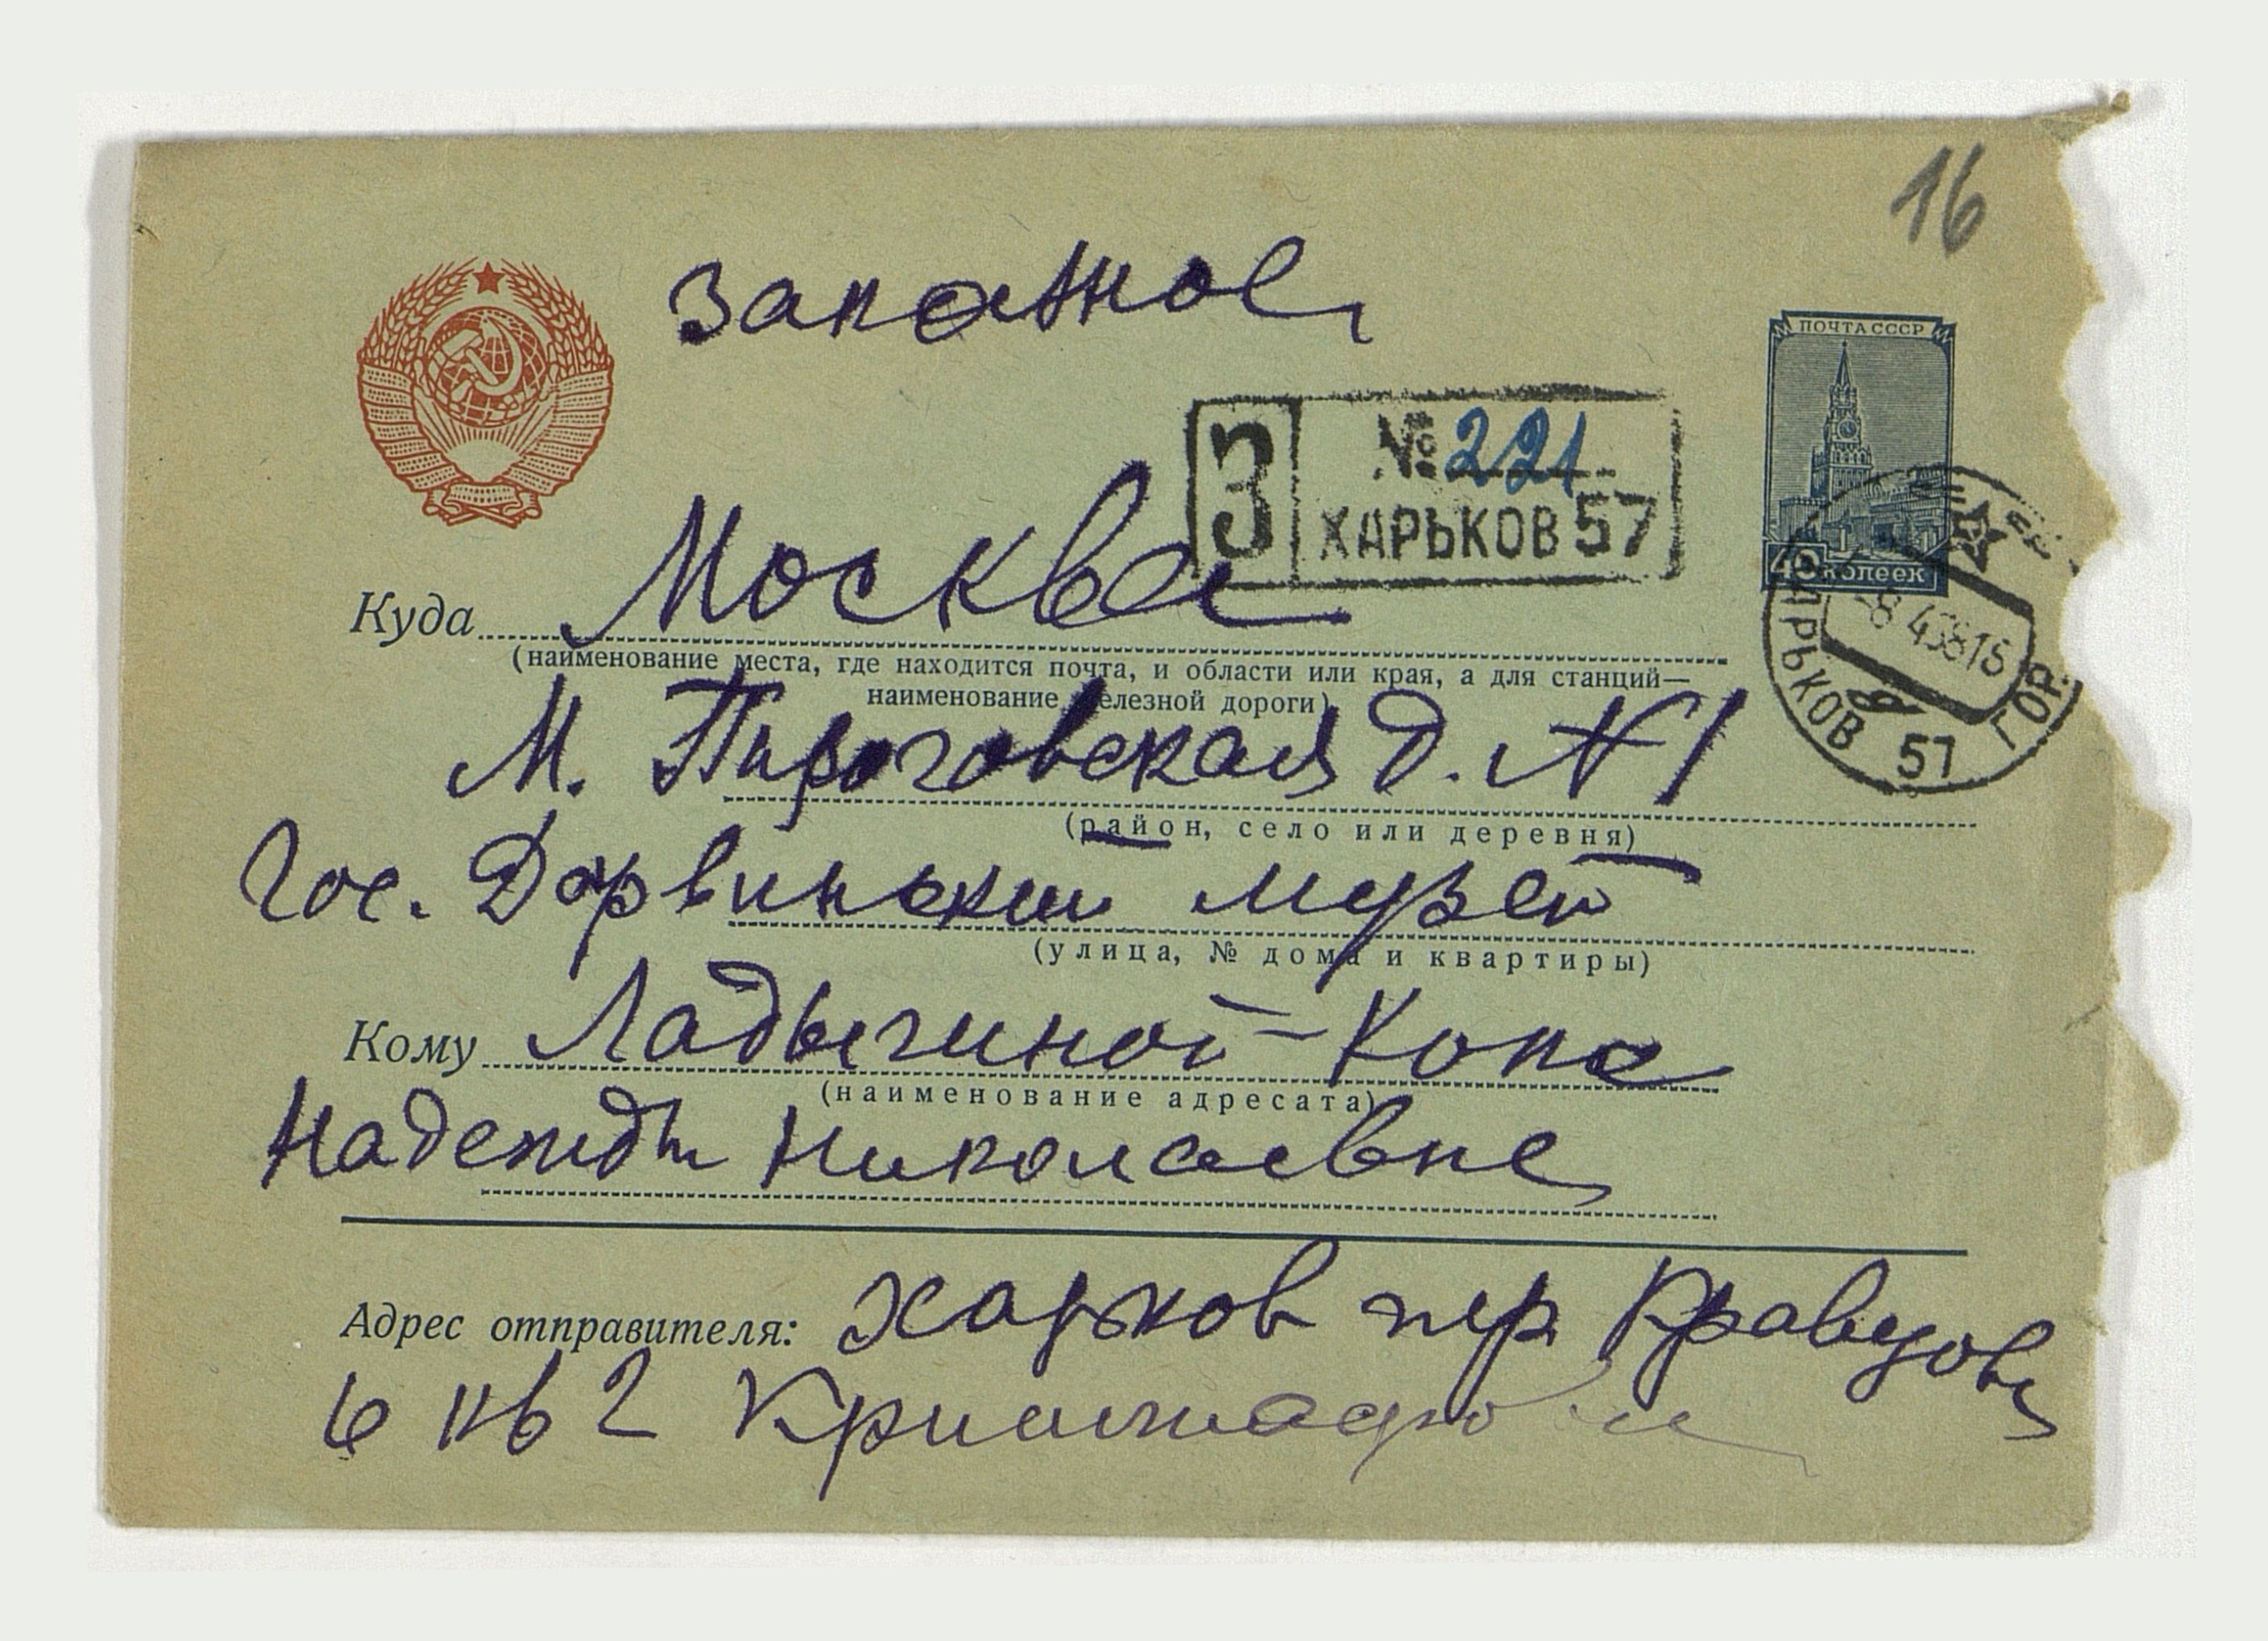 16
Заказное
ПОЧТА СССР
40 копеек
З № 221
ХАРЬКОВ 57
Куда Москва
(наименование места, где находится почта, и области или края, а для станций—
наименование железной дороги)
ХАРЬКОВ 57 ГОР.
М. Пироговская д. N 1
(район, село или деревня)
Гос. Дарвинский музей
(улица, № дома и квартиры)
Кому Ладыгиной-Котс
(наименование адресата)
Надежды Николаевне
Адрес отправителя: Харьков пер Кравцова
6 кв 2